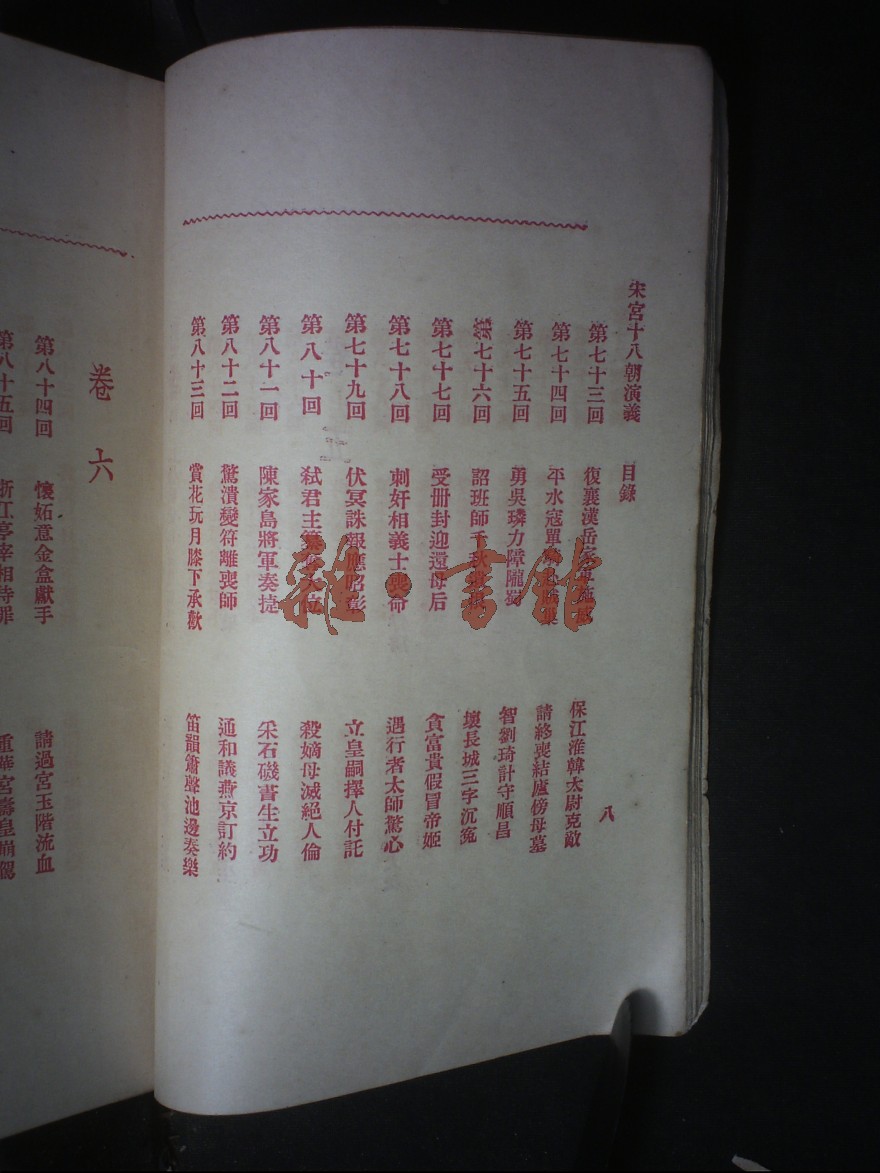 宋宮十八朝演義 目錄 八
第七十三回 復襄漢岳家軍 保江淮韓太尉克敵
第七十四回 平水寇單 請終喪結廬傍母墓
第七十五回 勇吳璘力障隴蜀 智劉琦計守順昌
第七十六回 詔班師 壞長城三字沉冤
第七十七回 受冊封迎還母后 貪富貴假冒帝姬
第七十八回 刺奸相義士喪命 遇行者太師驚心
第七十九回 伏冥誅報應昭彰 立皇嗣擇人付託
第八十回 弑君主 殺嫡母滅絕人倫
第八十一回 陳家島將軍奏捷 采石磯書生立功
第八十二回 驚潰變符離喪師 通和議燕京訂約
第八十三回 賞花玩月膝下承歡 笛韻簫聲池邊奏樂
卷六
第八十四回 懷妬意金盒獻手 請過宮玉階流血
第八十五回 浙江亭宰相待罪 重華宮壽皇崩
雜·書館